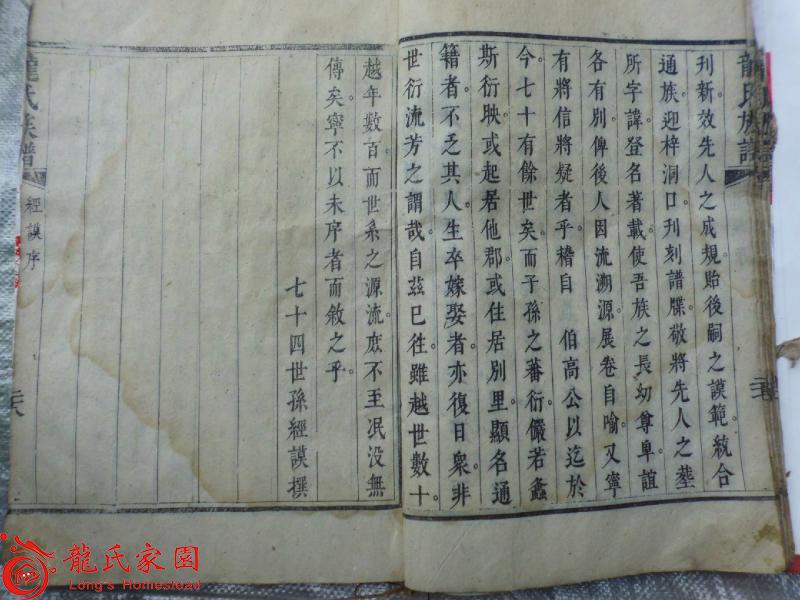 刊新效先人之成規貽後嗣之謨範統合
通族迎梓洞口刋刻譜牒敬將先人之塟
所字諱登名著載使吾族之長幼尊卑誼
各有別俾後人因流溯源展卷自喻又寧
有將信將疑者乎稽自 伯高公以迄於
今七十有餘世矣而子孫之蕃衍儼若螽
斯衍眏或起居他郡或住居別里顯名通
籍者不乏其人生卒嫁娶者亦復日衆非
世衍流芳之謂哉自茲已徃雖越世數十
越年數百而世系之源流庻不至冺没無
傳矣寧不以未序者而敘之乎
七十四世孫經謨撰
龍氏族譜
經謨序
龍氏族譜
龍氏家園
Long's Homestead